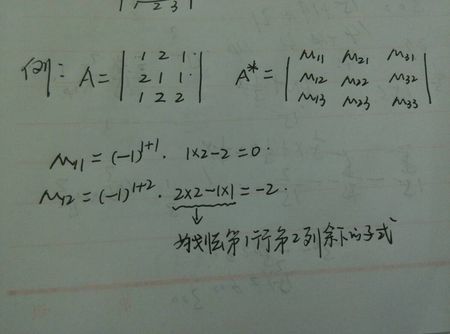 2 3
例: A = | 1 2 1 | A* = | M11 M21 M31 |
| 2 1 1 | | M12 M22 M32 |
| 1 2 2 | | M13 M23 M33 |
M11 = (-1)^1+1 · 1×2-2 = 0 ·
M12 = (-1)^1+2 · 2×2-1×1 = -2 ·
划去第1行第2列余下的子式